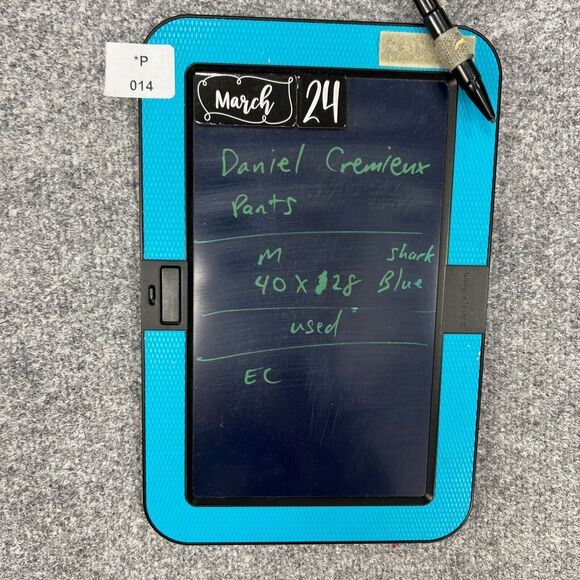 *P
014
March 24
Daniel Cremieux
Pants
M shark
40 x 28 Blue
used
EC